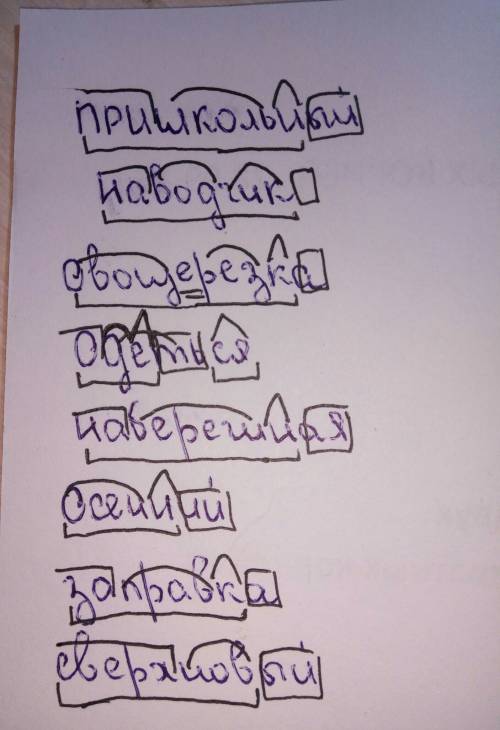 пришкольный
наводчик
овощерезка
одеться
набережная
осенний
заправка
сверхновый